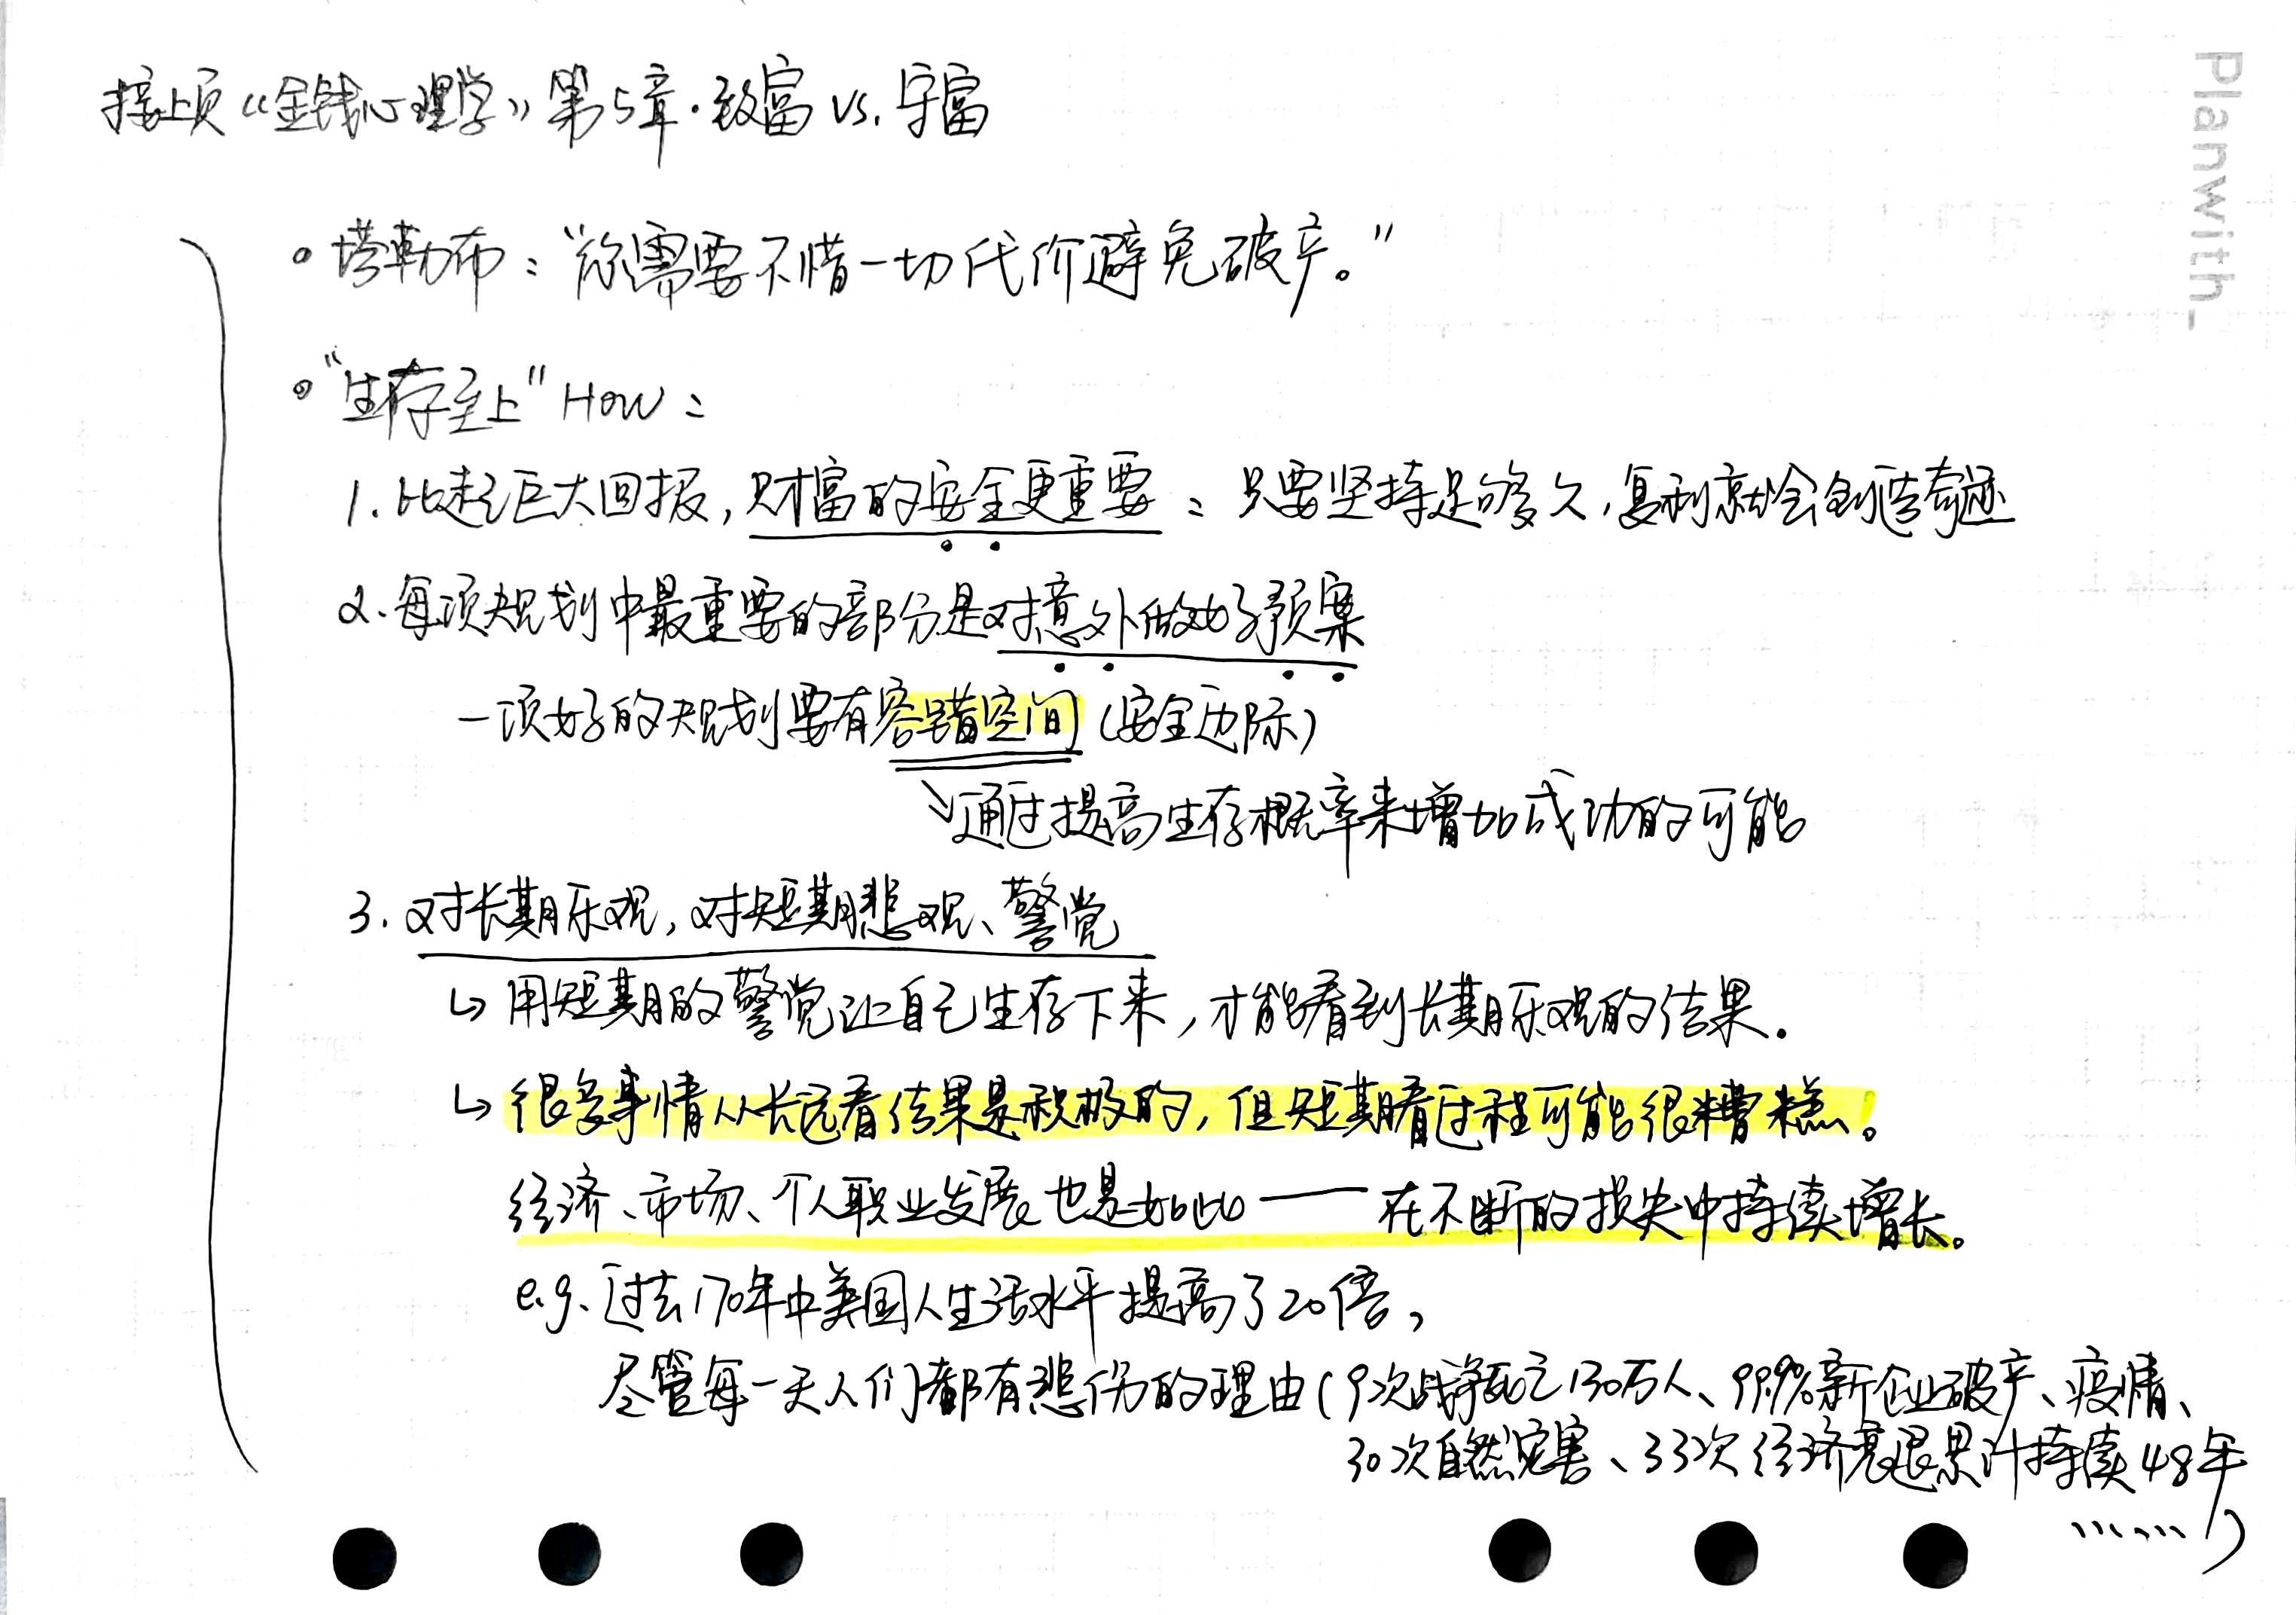 接上页《金钱心理学》第5章·致富 vs. 守富
Planwith_
塔勒布：“你需要不惜一切代价避免破产。”
“生存至上” HOW：
1. 比起巨大回报，财富的安全更重要：只要坚持足够久，复利就会创造奇迹
2. 每项规划中最重要的部分是对意外做好预案
一项好的规划要有容错空间（安全边际）
↘通过提高生存概率来增加成功的可能
3. 对长期乐观，对短期悲观、警觉
↳ 用短期的警觉让自己生存下来，才能看到长期乐观的结果.
↳ 很多事情从长远看结果是积极的，但短期看过程可能很糟糕。
经济、市场、个人职业发展也是如此——在不断的损失中持续增长。
e.g. 过去170年中美国人生活水平提高了20倍，
尽管每一天人们都有悲伤的理由（9次战争死亡130万人、99.9%新企业破产、疫情、
30次自然灾害、33次经济衰退累计持续48年
……）